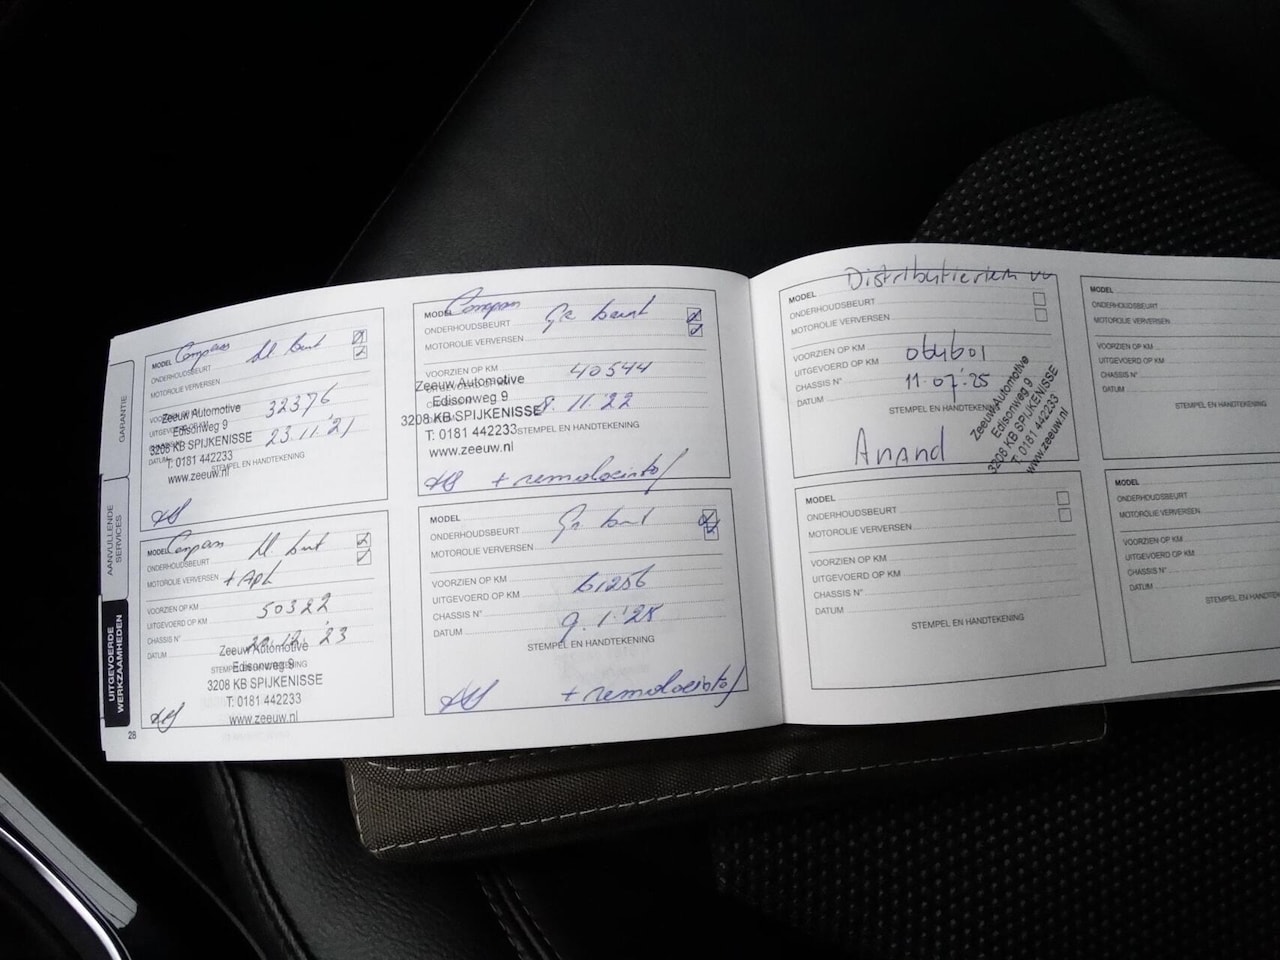 GARANTIE
AANVULLENDE SERVICES
UITGEVOERDE WERKZAAMHEDEN
28
MODEL Compass
ONDERHOUDSBEURT Kl beurt
MOTOROLIE VERVERSEN
VOORZIEN OP KM
UITGEVOERD OP KM 32376
CHASSIS N°
DATUM 23.11.'21
STEMPEL EN HANDTEKENING
Zeeuw Automotive
Edisonweg 9
3208 KB SPIJKENISSE
T: 0181 442233
www.zeeuw.nl
MODEL Compass
ONDERHOUDSBEURT Kl beurt
MOTOROLIE VERVERSEN + Apk
VOORZIEN OP KM
UITGEVOERD OP KM 50322
CHASSIS N°
DATUM 12.'23
STEMPEL EN HANDTEKENING
Zeeuw Automotive
Edisonweg 9
3208 KB SPIJKENISSE
T: 0181 442233
www.zeeuw.nl
MODEL Compass
ONDERHOUDSBEURT Gr beurt
MOTOROLIE VERVERSEN
40544
8.11.22
STEMPEL EN HANDTEKENING
Zeeuw Automotive
Edisonweg 9
3208 KB SPIJKENISSE
T: 0181 442233
www.zeeuw.nl
+ remvloeistof
MODEL
ONDERHOUDSBEURT Gr beurt
MOTOROLIE VERVERSEN
VOORZIEN OP KM
UITGEVOERD OP KM 61256
CHASSIS N°
DATUM 9.1.'25
STEMPEL EN HANDTEKENING
+ remvloeistof
MODEL Distributieriem vv
ONDERHOUDSBEURT
MOTOROLIE VERVERSEN
VOORZIEN OP KM
UITGEVOERD OP KM 064601
CHASSIS N°
DATUM 11.07.'25
STEMPEL EN HANDTEKENING
Anand
Zeeuw Automotive
Edisonweg 9
3208 KB SPIJKENISSE
T: 0181 442233
www.zeeuw.nl
MODEL
ONDERHOUDSBEURT
MOTOROLIE VERVERSEN
VOORZIEN OP KM
UITGEVOERD OP KM
CHASSIS N°
DATUM
STEMPEL EN HANDTEKENING
MODEL
ONDERHOUDSBEURT
MOTOROLIE VERVERSEN
VOORZIEN OP KM
UITGEVOERD OP KM
CHASSIS N°
DATUM
STEMPEL EN HANDTEKENING
MODEL
ONDERHOUDSBEURT
MOTOROLIE VERVERSEN
VOORZIEN OP KM
UITGEVOERD OP KM
CHASSIS N°
DATUM
STEMPEL EN